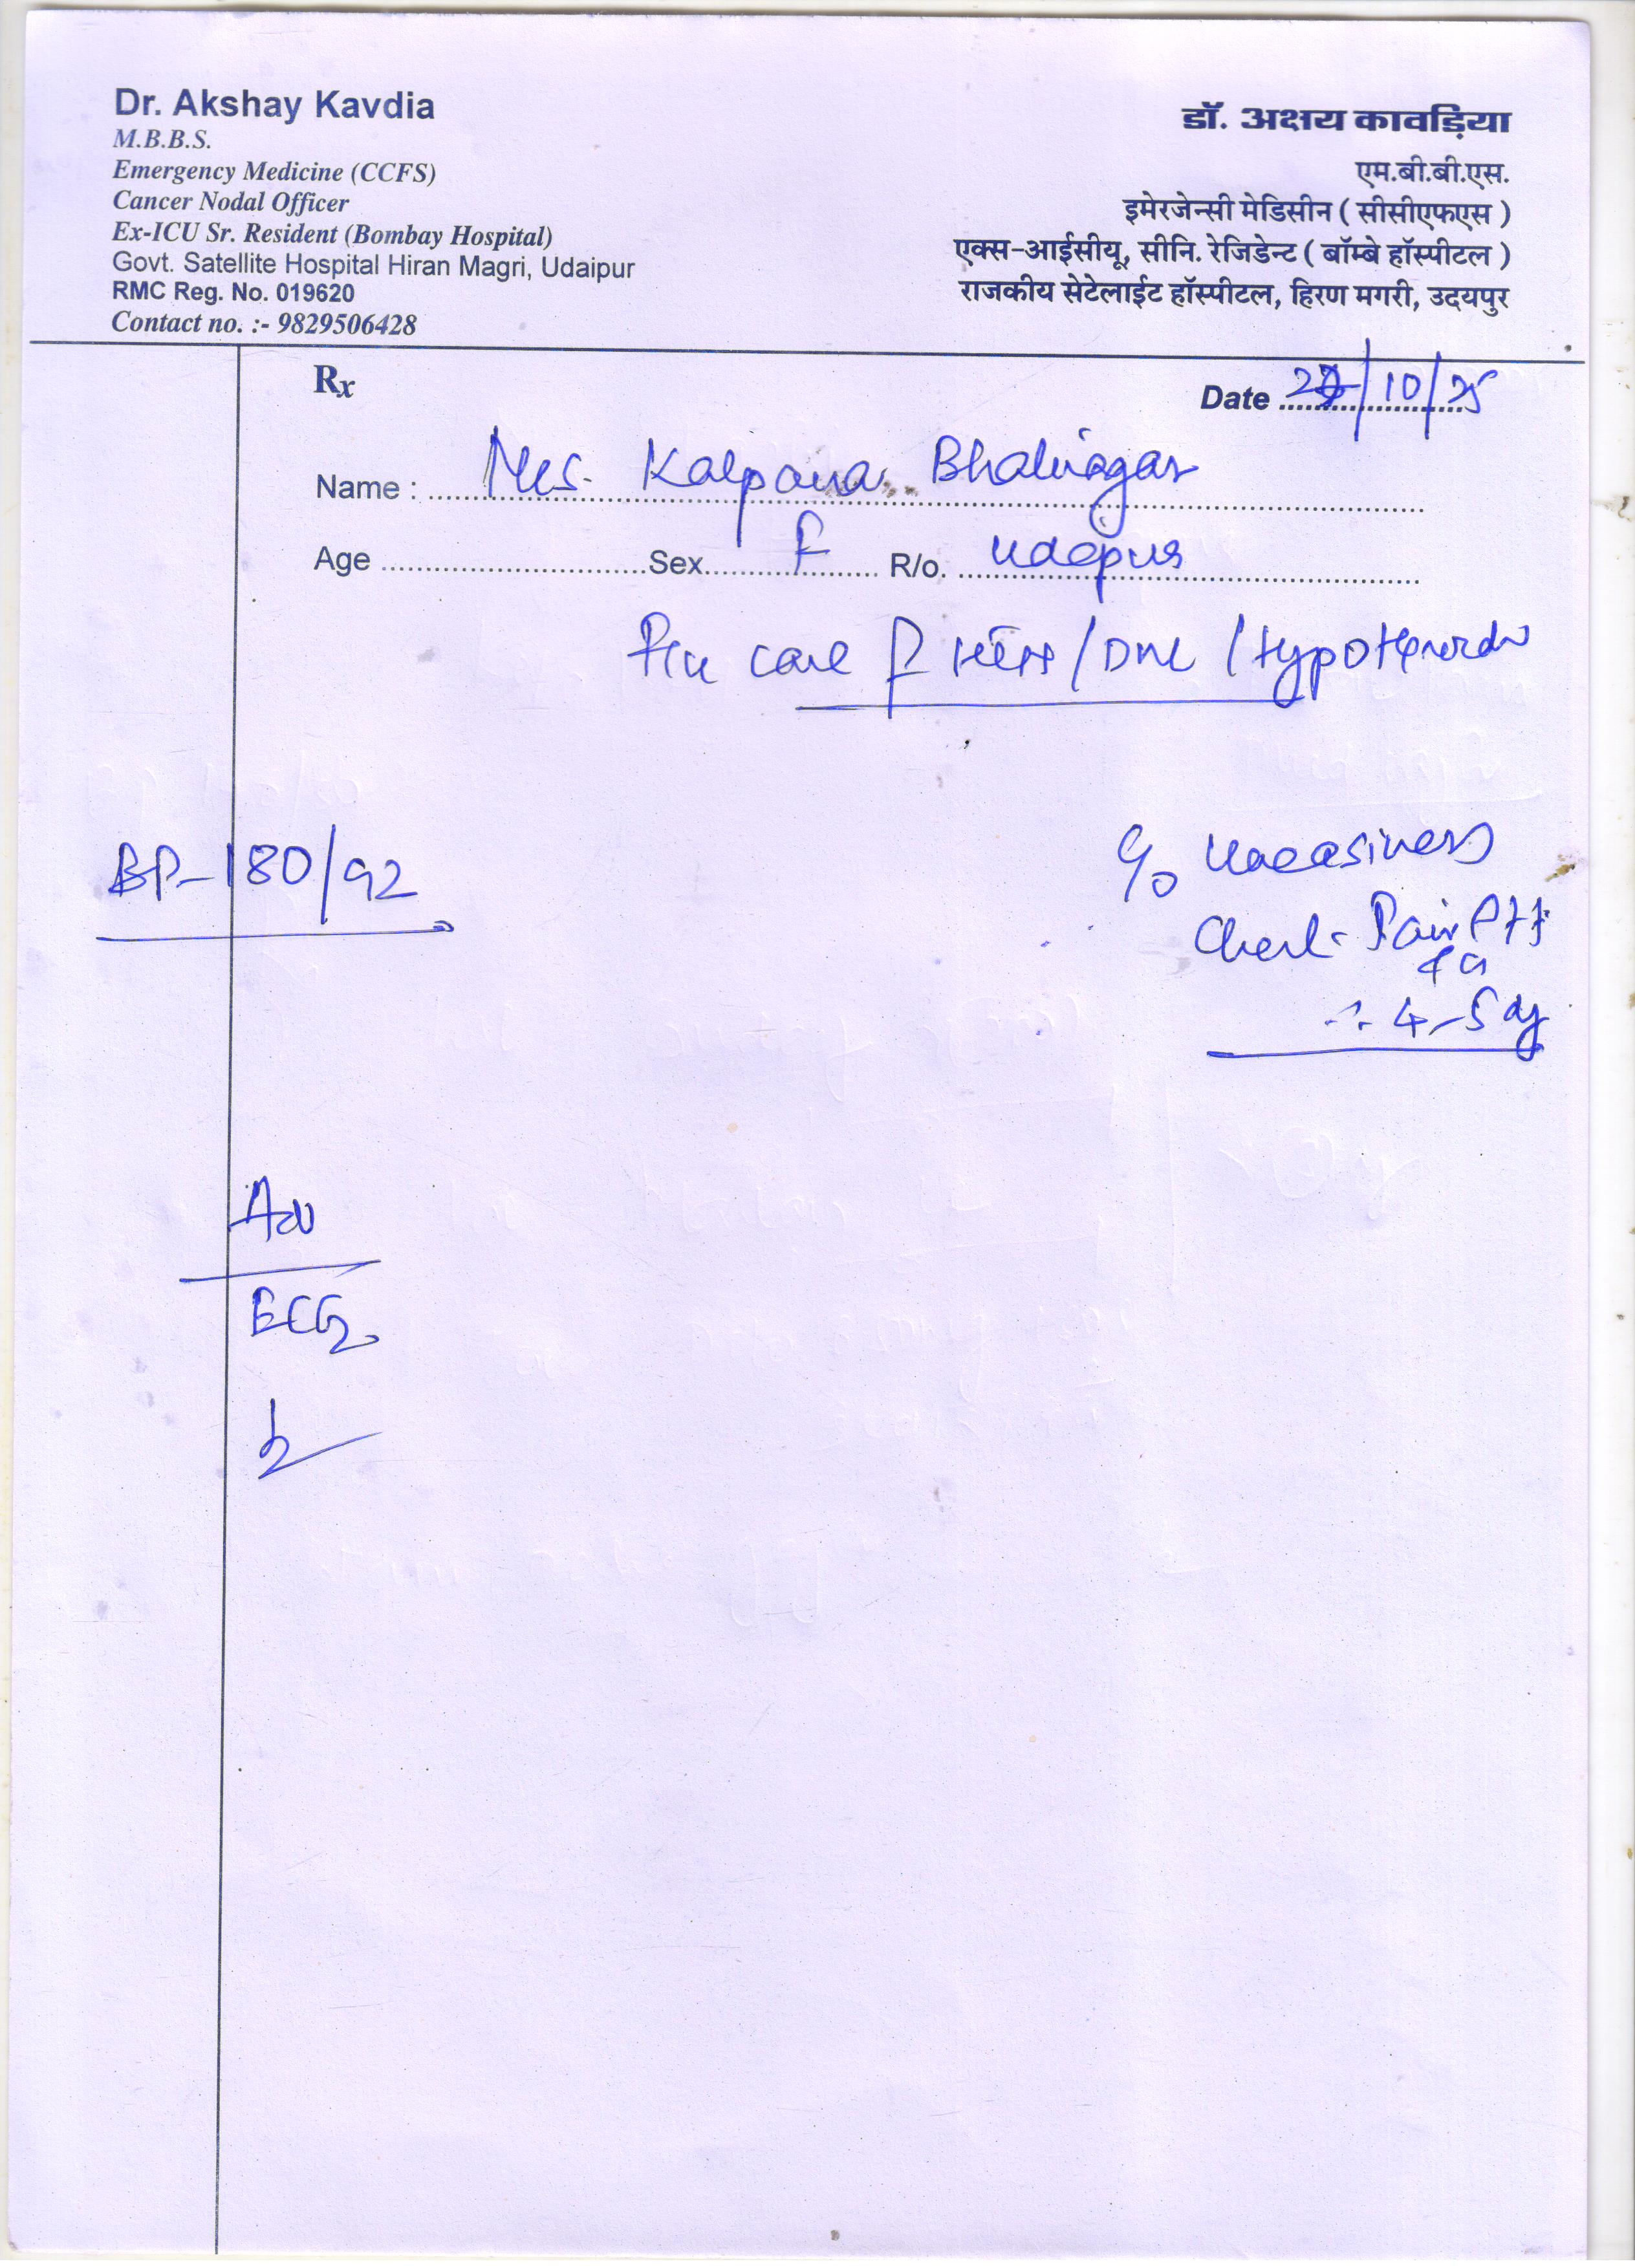 Dr. Akshay Kavdia
M.B.B.S.
Emergency Medicine (CCFS)
Cancer Nodal Officer
Ex-ICU Sr. Resident (Bombay Hospital)
Govt. Satellite Hospital Hiran Magri, Udaipur
RMC Reg. No. 019620
Contact no. :- 9829506428
डॉ. अक्षय कावड़िया
एम.बी.बी.एस.
इमेरजेन्सी मेडिसीन ( सीसीएफएस )
एक्स-आईसीयू, सीनि. रेजिडेन्ट ( बॉम्बे हॉस्पीटल )
राजकीय सेटेलाईट हॉस्पीटल, हिरण मगरी, उदयपुर
Rx
Date /10/25
Name : Mrs. Kalpana Bhatnagar
Age Sex F R/o. Udaipur
care / /
BP-180/92
C/o Uneasiness
Chest Pain
4-5 dy
Adv
ECG